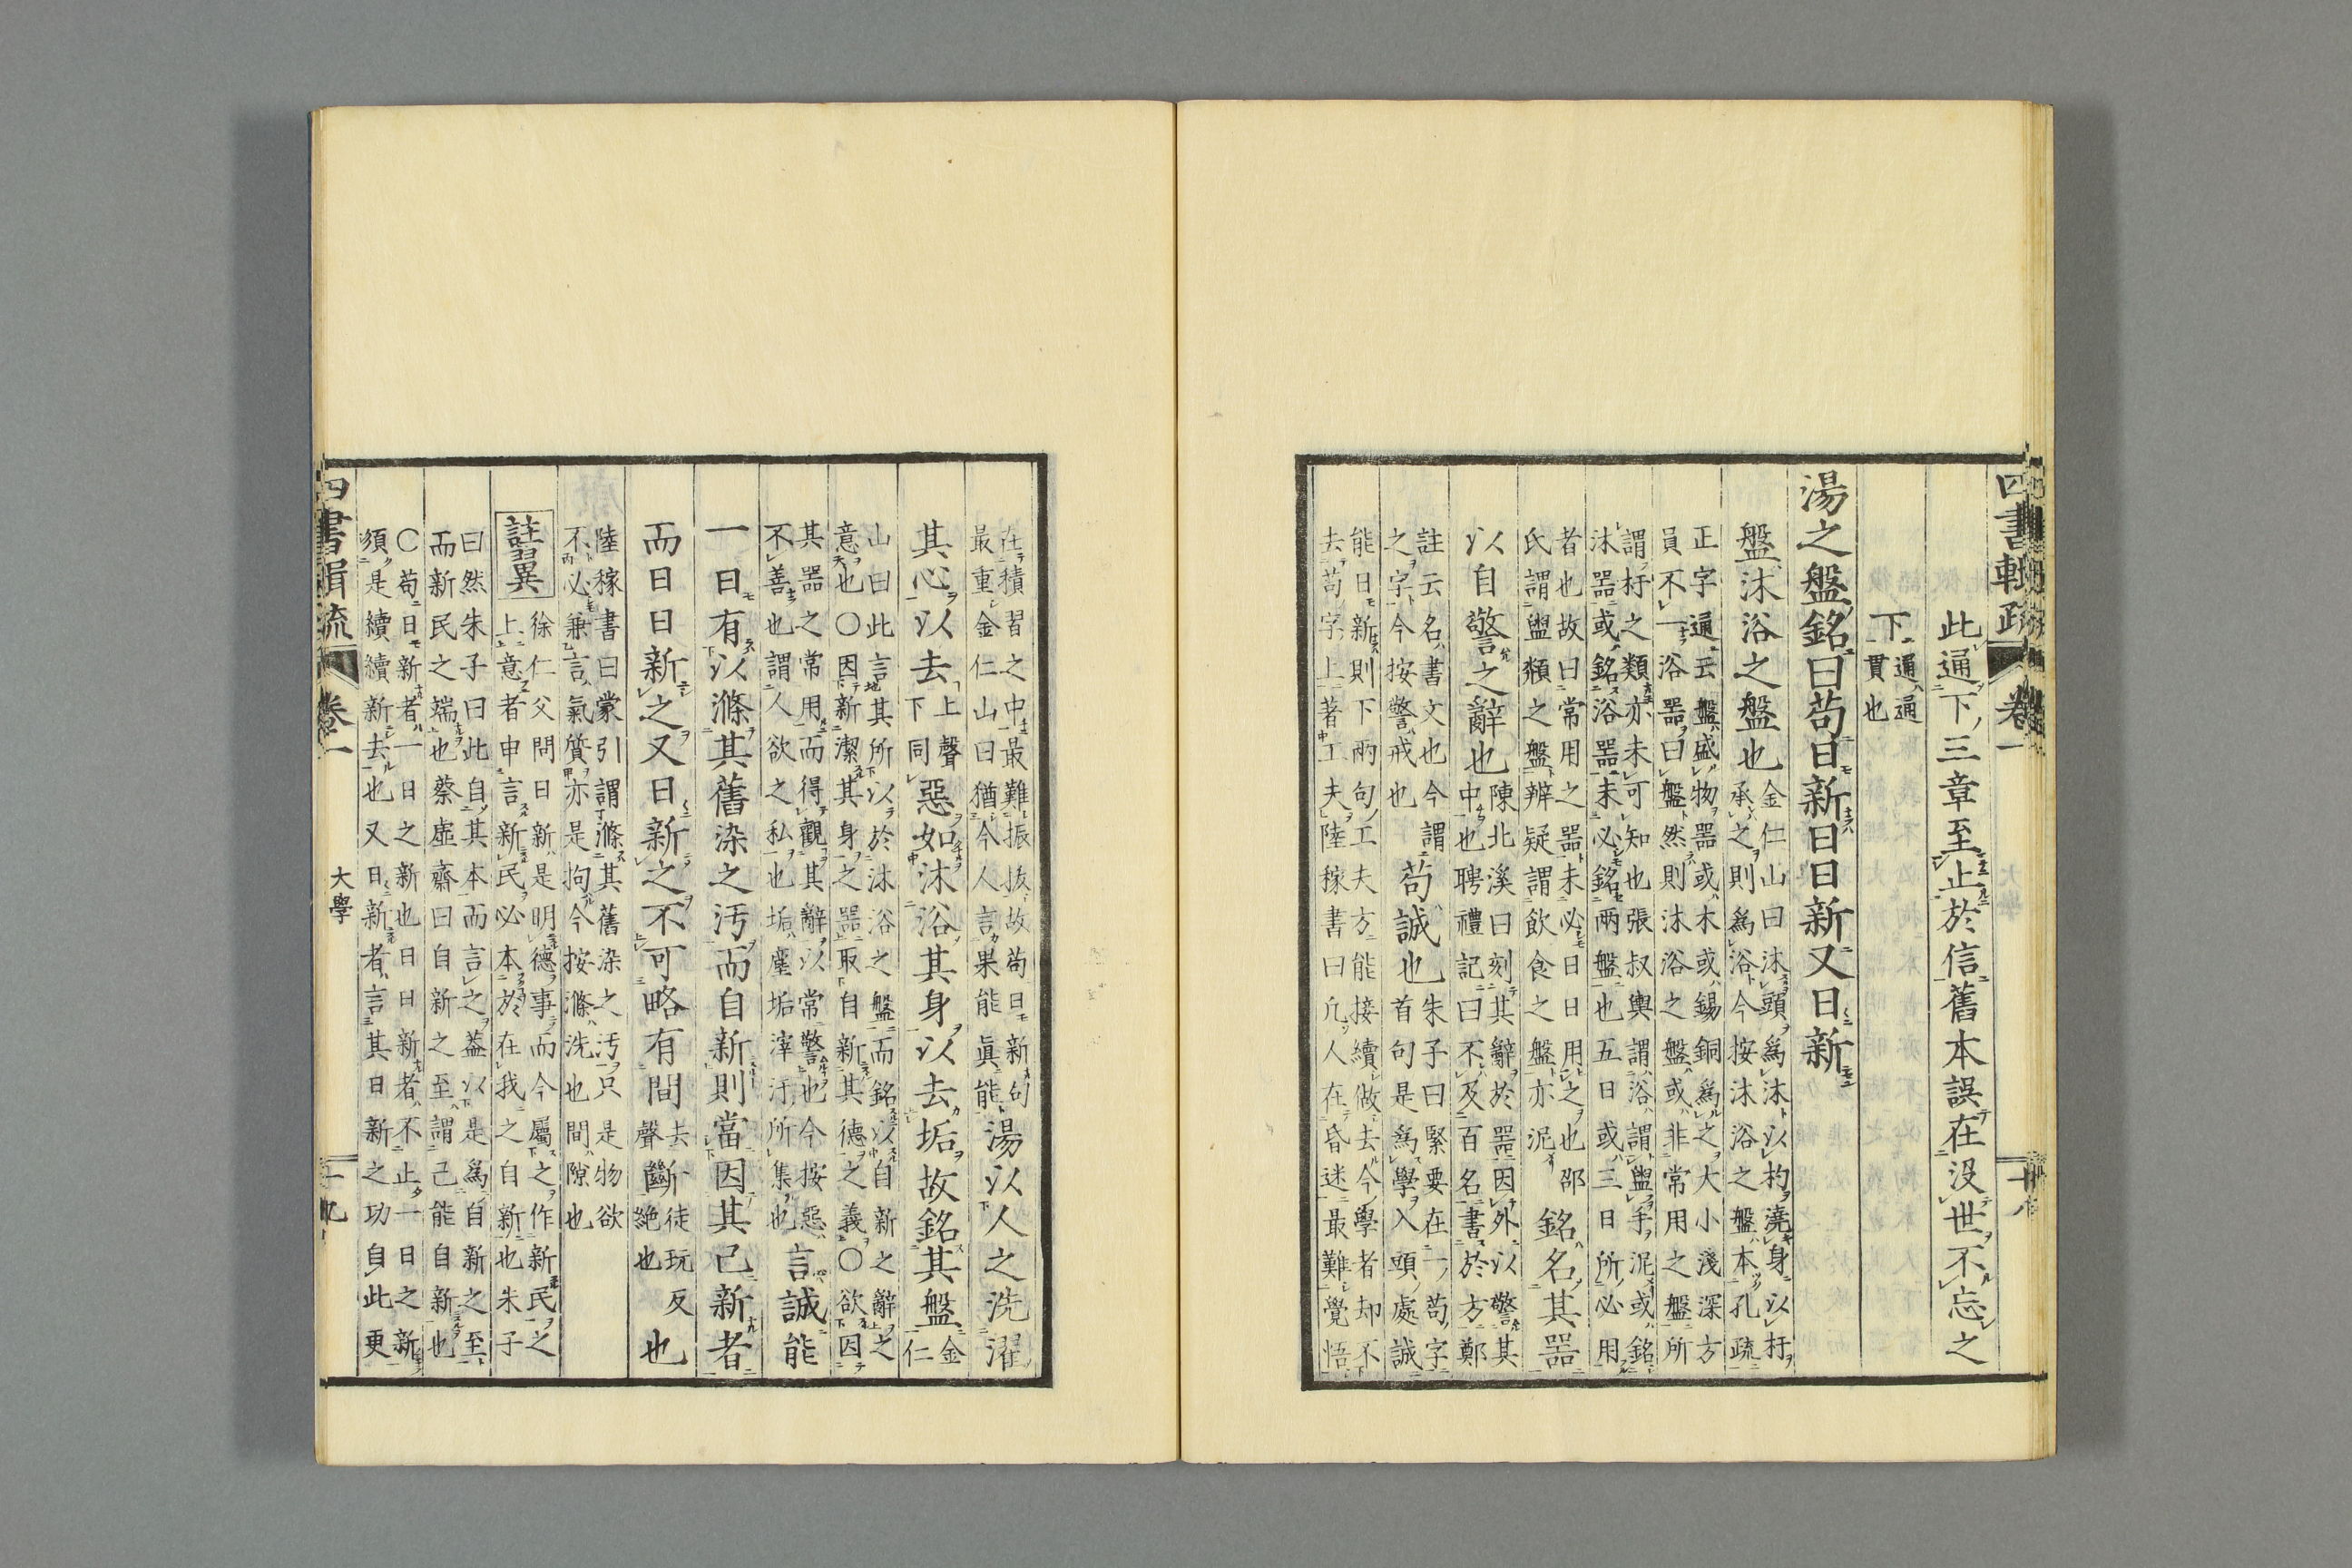 四書輯疏 卷一 十八
此通下三章至止於信舊本誤在沒世不忘之
下通通
貫也
湯之盤銘曰苟日新日日新又日新
盤沐浴之盤也金仁山曰沐頭爲沐以枃澆身以杅
承之則爲浴今按沐浴之盤本孔疏
正字通云盤盛物器或木或錫銅爲之大小淺深方
員不一浴器曰盤然則沐浴之盤或非常用之盤所
謂杅之類亦未可知也張叔輿謂浴謂盥手泥或銘
沐器或銘浴器未必銘兩盤也五日或三日所必用
者也故曰常用之器未必日日用之也邵
氏謂盥頮之盤辨疑謂飲食之盤亦泥
銘名其器
以自警之辭也陳北溪曰刻其辭於器因外以警其
中也聘禮記曰不及百名書於方鄭
註云名書文也今謂
之字今按警戒也
苟誠也朱子曰緊要在一苟字
首句是爲學入頭處誠
能日新則下兩句工夫方能接續做去今學者却不
去苟字上著工夫陸稼書曰凡人在昏迷最難覺悟
在積習之中最難振拔故苟日新句
最重金仁山曰猶今人言果能眞能
湯以人之洗濯
其心以去上聲
下同
惡如沐浴其身以去垢故銘其盤金
仁
山曰此言其所以於沐浴之盤而銘以自新之辭之
意也○因新潔其身之器取自新其德之義○欲因
其器之常用而得觀其辭以常警也今按惡
不善也謂人欲之私也垢塵垢滓汙所集也
言誠能
一日有以滌其舊染之汚而自新則當因其已新者
而日日新之又日新之不可略有間去
聲
斷徒玩反
絕也
也
陸稼書曰蒙引謂滌其舊染之汚只是物欲
不必兼言氣質亦是拘今按滌洗也間隙也
註翼
徐仁父問日新是明德事而今屬之作新民之
上意者申言新民必本於在我之自新也朱子
曰然朱子曰此自其本而言之葢以是爲自新之至
而新民之端也蔡虛齋曰自新之至謂己能自新也
○苟日新者一日之新也日日新者不止一日之新
須是續續新去也又日新者言其日新之功自此更
四書輯疏 卷一 大學 十九